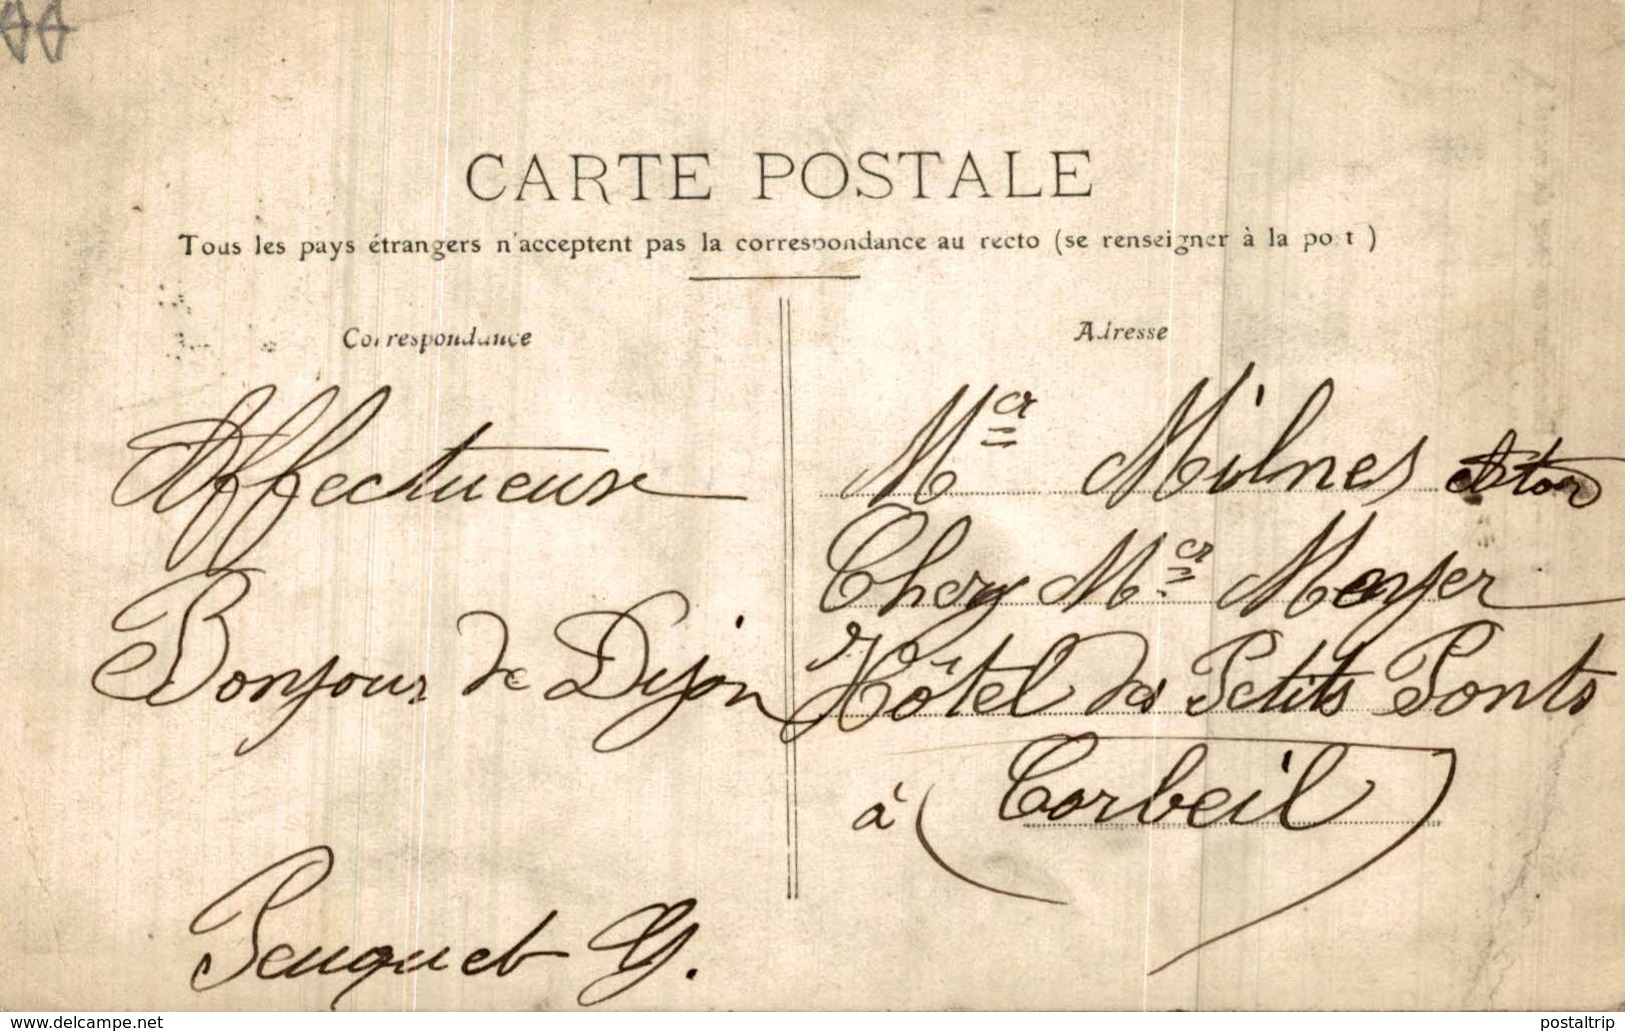 CARTE POSTALE
Tous les pays étrangers n'acceptent pas la correspondance au recto (se renseigner à la post)
Correspondance
Adresse
Affectueux
Bonjour de Dijon
Peuquet G.
Mr Milnes
Chez Mr Meyer
Hôtel des Petits Ponts
à Corbeil
www.delcampe.net
postaltrip